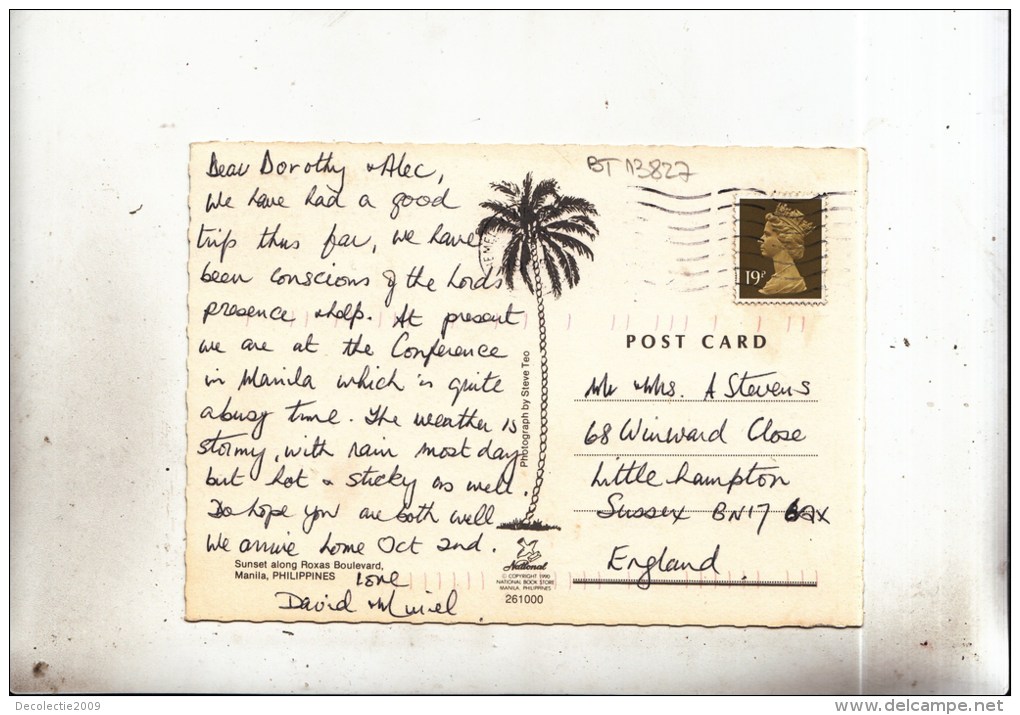 BT 13827
Dear Dorothy & Alec,
We have had a good
trip thus far, we have
been conscious of the Lord's
presence & help. At present
we are at the Conference
in Manila which is quite
a busy time. The weather is
stormy, with rain most day
but hot & sticky as well.
Do hope you are both well
We arrive home Oct 2nd.
love
David & Muriel
Sunset along Roxas Boulevard,
Manila, PHILIPPINES
Photograph by Steve Teo
National
© COPYRIGHT 1990
NATIONAL BOOK STORE
MANILA, PHILIPPINES
261000
19P
POST CARD
Mr & Mrs. A Stevens
68 Winward Close
Little hampton
Sussex BN17
England.
Decolectie2009
www.delcampe.net